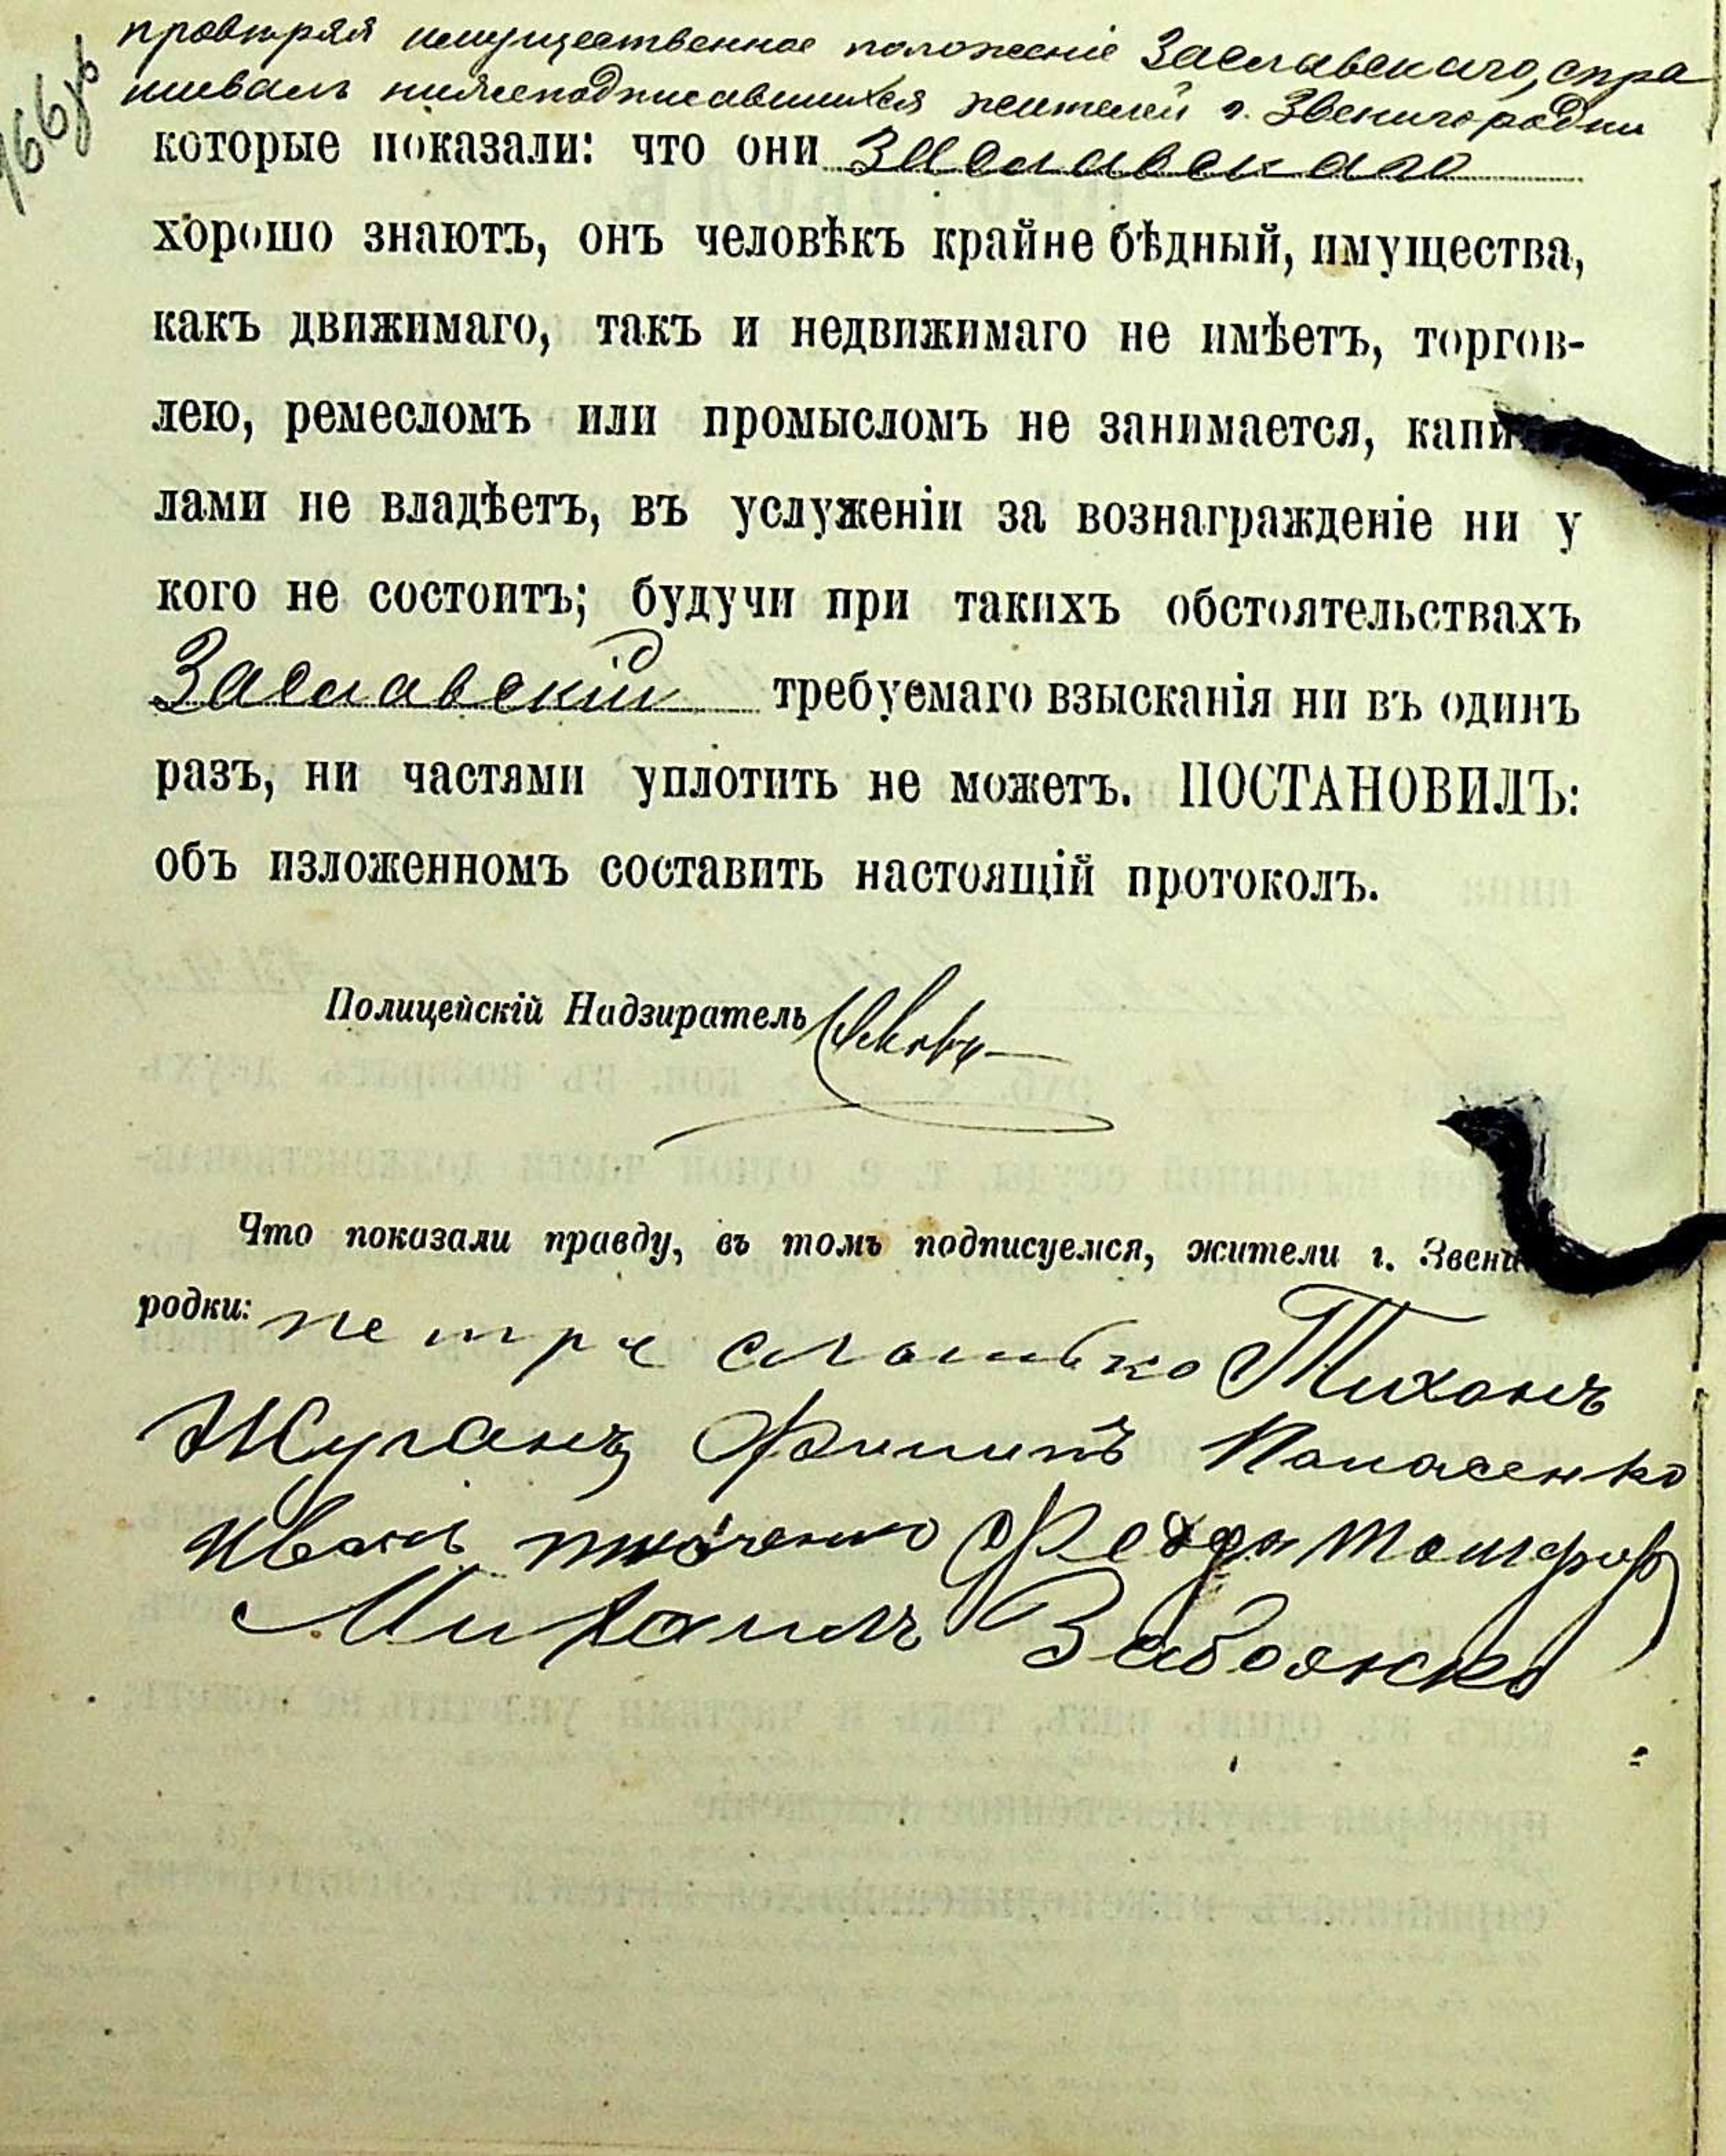 166 об
провѣряя имущественное положеніе Заславскаго, спра
шивалъ нижеподписавшихся жителей г. Звенигородки
которые показали: что они Заславскаго
хорошо знаютъ, онъ человѣкъ крайне бѣдный, имущества,
какъ движимаго, такъ и недвижимаго не имѣетъ, торгов-
лею, ремесломъ или промысломъ не занимается, капи
лами не владѣетъ, въ услуженіи за вознагражденіе ни у
кого не состоитъ; будучи при такихъ обстоятельствахъ
Заславскій требуемаго взысканія ни въ одинъ
разъ, ни частями уплотить не можетъ. ПОСТАНОВИЛЪ:
объ изложенномъ составить настоящій протоколъ.
Полицейскій Надзиратель
Что показали правду, въ томъ подписуемся, жители г. Звени
родки: петръ Тихонъ
Жуганъ Филипъ Панасенко
Иванъ Федоръ
Михаилъ